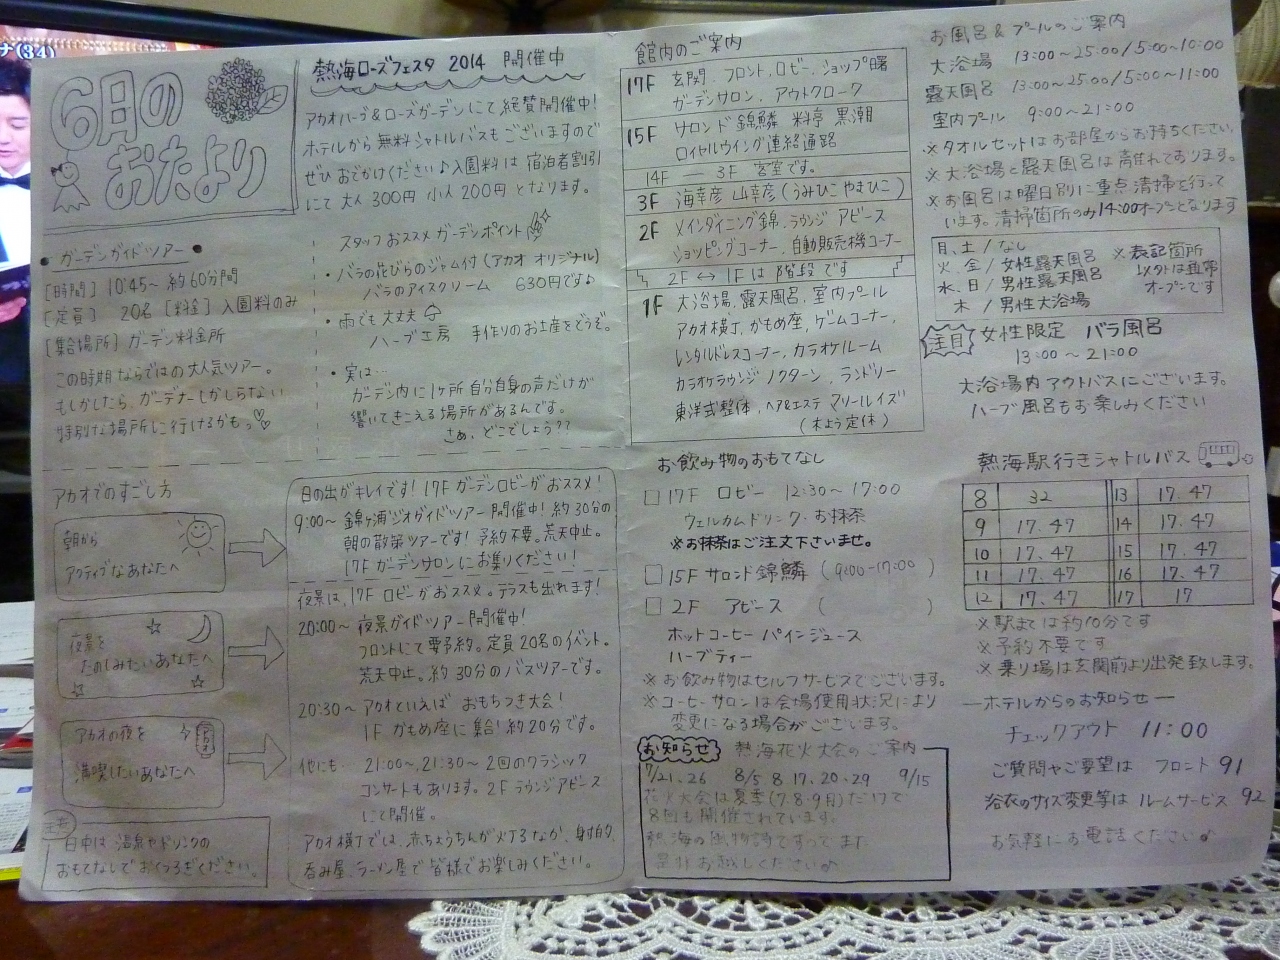 ナ(34)
6月の
おたより
熱海ローズフェスタ 2014 開催中
アカオハーブ&ローズガーデンにて絶賛開催中!
ホテルから無料シャトルバスもございますので
ぜひおでかけください♪入園料は宿泊者割引
にて大人300円 小人200円となります。
• ガーデンガイドツアー •
[時間] 10:45~ 約60分間
[定員] 20名 [料金] 入園料のみ
[集合場所] ガーデン料金所
この時期ならではの大人気ツアー。
もしかしたら、ガーデナーしかしらない
特別な場所に行けるかもっ♡
スタッフおススメ ガーデンポイント
• バラの花びらのジャム付(アカオ オリジナル)
バラのアイスクリーム 630円です♪
• 雨でも大丈夫
ハーブ工房 手作りのお土産をどうぞ。
• 実は…
ガーデン内に1ヶ所自分自身の声だけが
響いてきこえる場所があるんです。
さぁ、どこでしょう??
アカオでのすごし方
朝から
アクティブなあなたへ
日の出がキレイです! 17F ガーデンロビーがおススメ!
9:00~ 錦ヶ浦ジオガイドツアー 開催中! 約30分の
朝の散策ツアーです! 予約不要。荒天中止。
17F ガーデンサロンにお集りください!
夜景を
たのしみたいあなたへ
夜景は、17F ロビーがおススメ。テラスも出れます!
20:00~ 夜景ガイドツアー開催中!
フロントにて要予約。定員20名のイベント。
荒天中止。約30分のバスツアーです。
アカオの夜を
満喫したいあなたへ
20:30~ アカオといえば おもちつき大会!
1F かもめ座に集合! 約20分です。
他にも… 21:00~, 21:30~ 2回のクラシック
コンサートもあります。2F ラウンジアビース
にて開催。
アカオ横丁では、赤ちょうちんが灯るなか、射的、
呑み屋、ラーメン屋で皆様でお楽しみください。
日中は温泉やドリンクの
おもてなしでおくつろぎください。
館内のご案内
17F 玄関、フロント、ロビー、ショップ曙
ガーデンサロン、アウトクローク
15F サロンド錦鱗 料亭 黒潮
ロイヤルウイング連絡通路
14F — 3F 客室です。
3F 海幸彦 山幸彦(うみひこやまひこ)
2F メインダイニング錦、ラウンジ アビース
ショッピングコーナー、自動販売機コーナー
2F ↔ 1F は階段です
1F 大浴場、露天風呂、室内プール
アカオ横丁、かもめ座、ゲームコーナー、
レンタルドレスコーナー、カラオケルーム
カラオケラウンジ ノクターン、ランドリー
東洋式整体、ヘア&エステ マリールイズ
(木よう定休)
お飲み物のおもてなし
□ 17F ロビー 12:30~17:00
ウェルカムドリンク・お抹茶
※お抹茶はご注文下さいませ。
□ 15F サロンド錦鱗 (9:00-17:00)
□ 2F アビース ( )
ホットコーヒー パインジュース
ハーブティー
※お飲み物はセルフサービスでございます。
※コーヒーサロンは会場使用状況により
変更になる場合がございます。
お知らせ 熱海花火大会のご案内
7/21、26 8/5 8 17、20、29 9/15
花火大会は夏季(7・8・9月)だけで
8回も開催されています。
熱海の風物詩ですってまた
是非お越しください♪
お風呂&プールのご案内
大浴場 13:00~25:00/5:00~10:00
露天風呂 13:00~25:00/5:00~11:00
室内プール 9:00~21:00
※タオルセットはお部屋からお持ちください。
※大浴場と露天風呂は離れております。
※お風呂は曜日別に重点清掃を行って
います。清掃箇所のみ14:00オープンとなります
月、土/なし
火、金/女性露天風呂
水、日/男性露天風呂
木/男性大浴場
※表記箇所
以外は通常
オープンです
注目 女性限定 バラ風呂
13:00~21:00
大浴場内アウトバスにございます。
ハーブ風呂もお楽しみください
熱海駅行きシャトルバス
8 32 13 17.47
9 17.47 14 17.47
10 17.47 15 17.47
11 17.47 16 17.47
12 17.47 17 17
※駅までは約10分です
※予約不要です
※乗り場は玄関前より出発致します。
—ホテルからのお知らせ—
チェックアウト 11:00
ご質問やご要望は フロント 91
浴衣のサイズ変更等は ルームサービス 92
お気軽にお電話ください♪